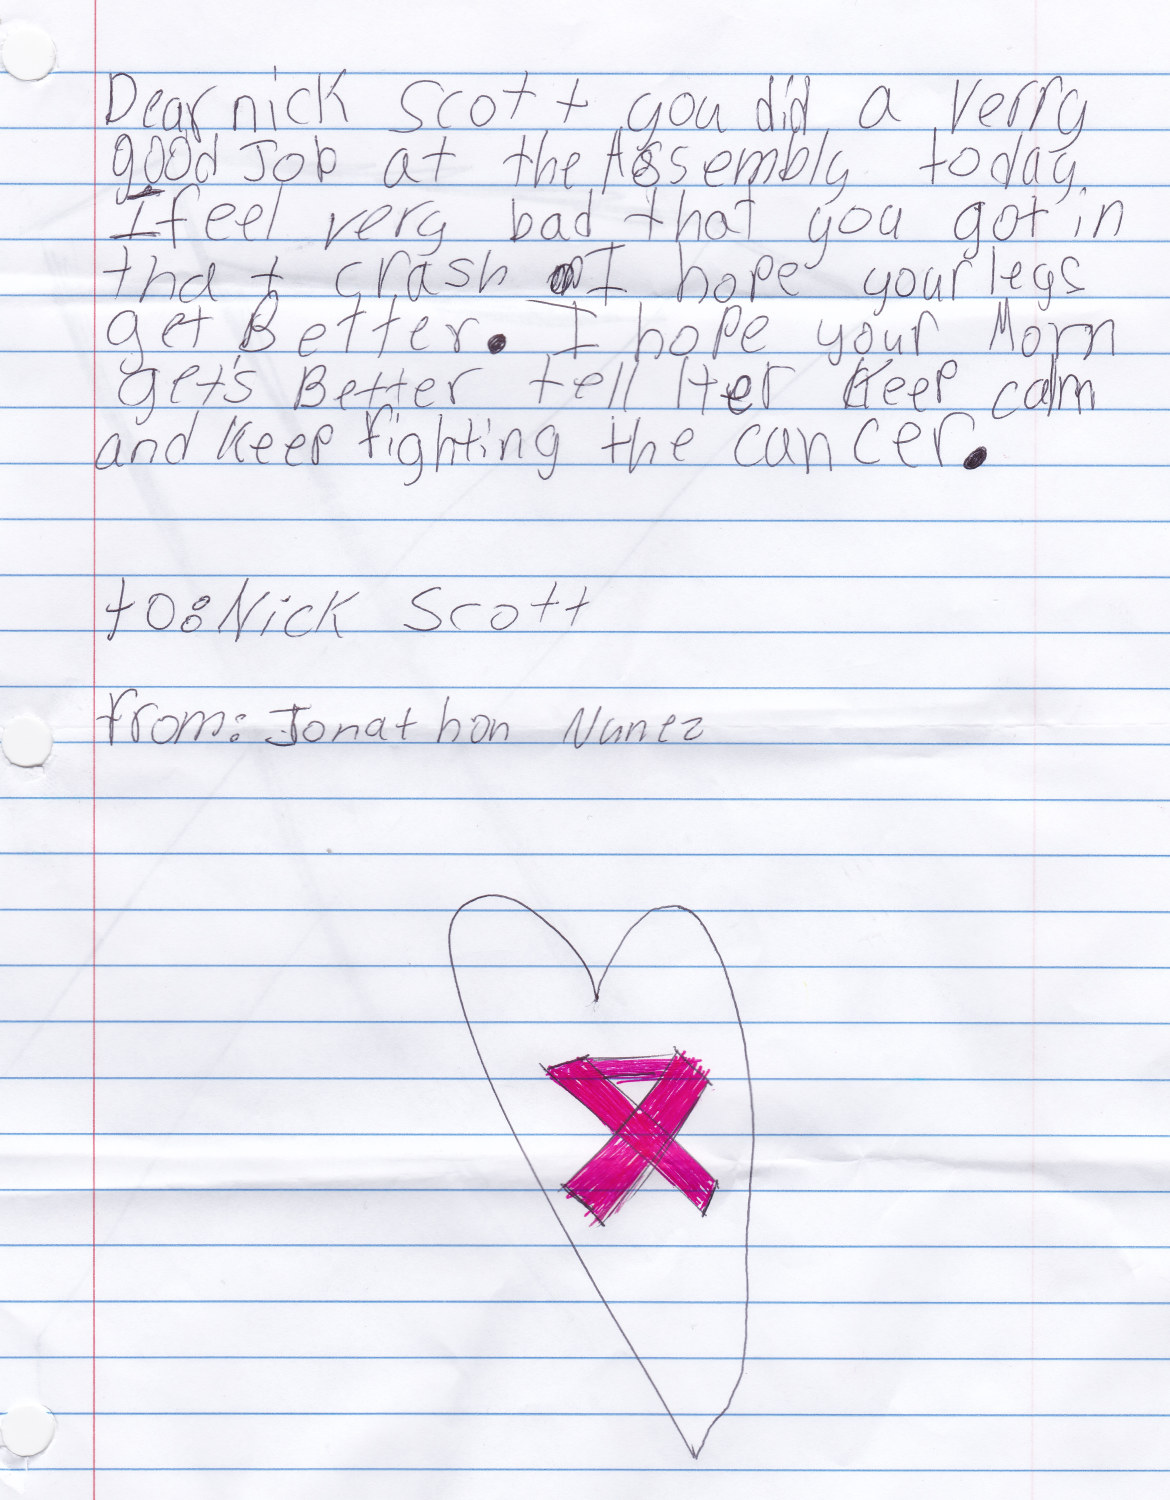 Dear nick Scott you did a verry
good Job at the Assembly today.
I feel very bad that you got in
that crash I hope your legs
get Better. I hope your Mom
gets Better tell Her Keep calm
and Keep fighting the cancer.
to: Nick Scott
from: Jonathon Nunez